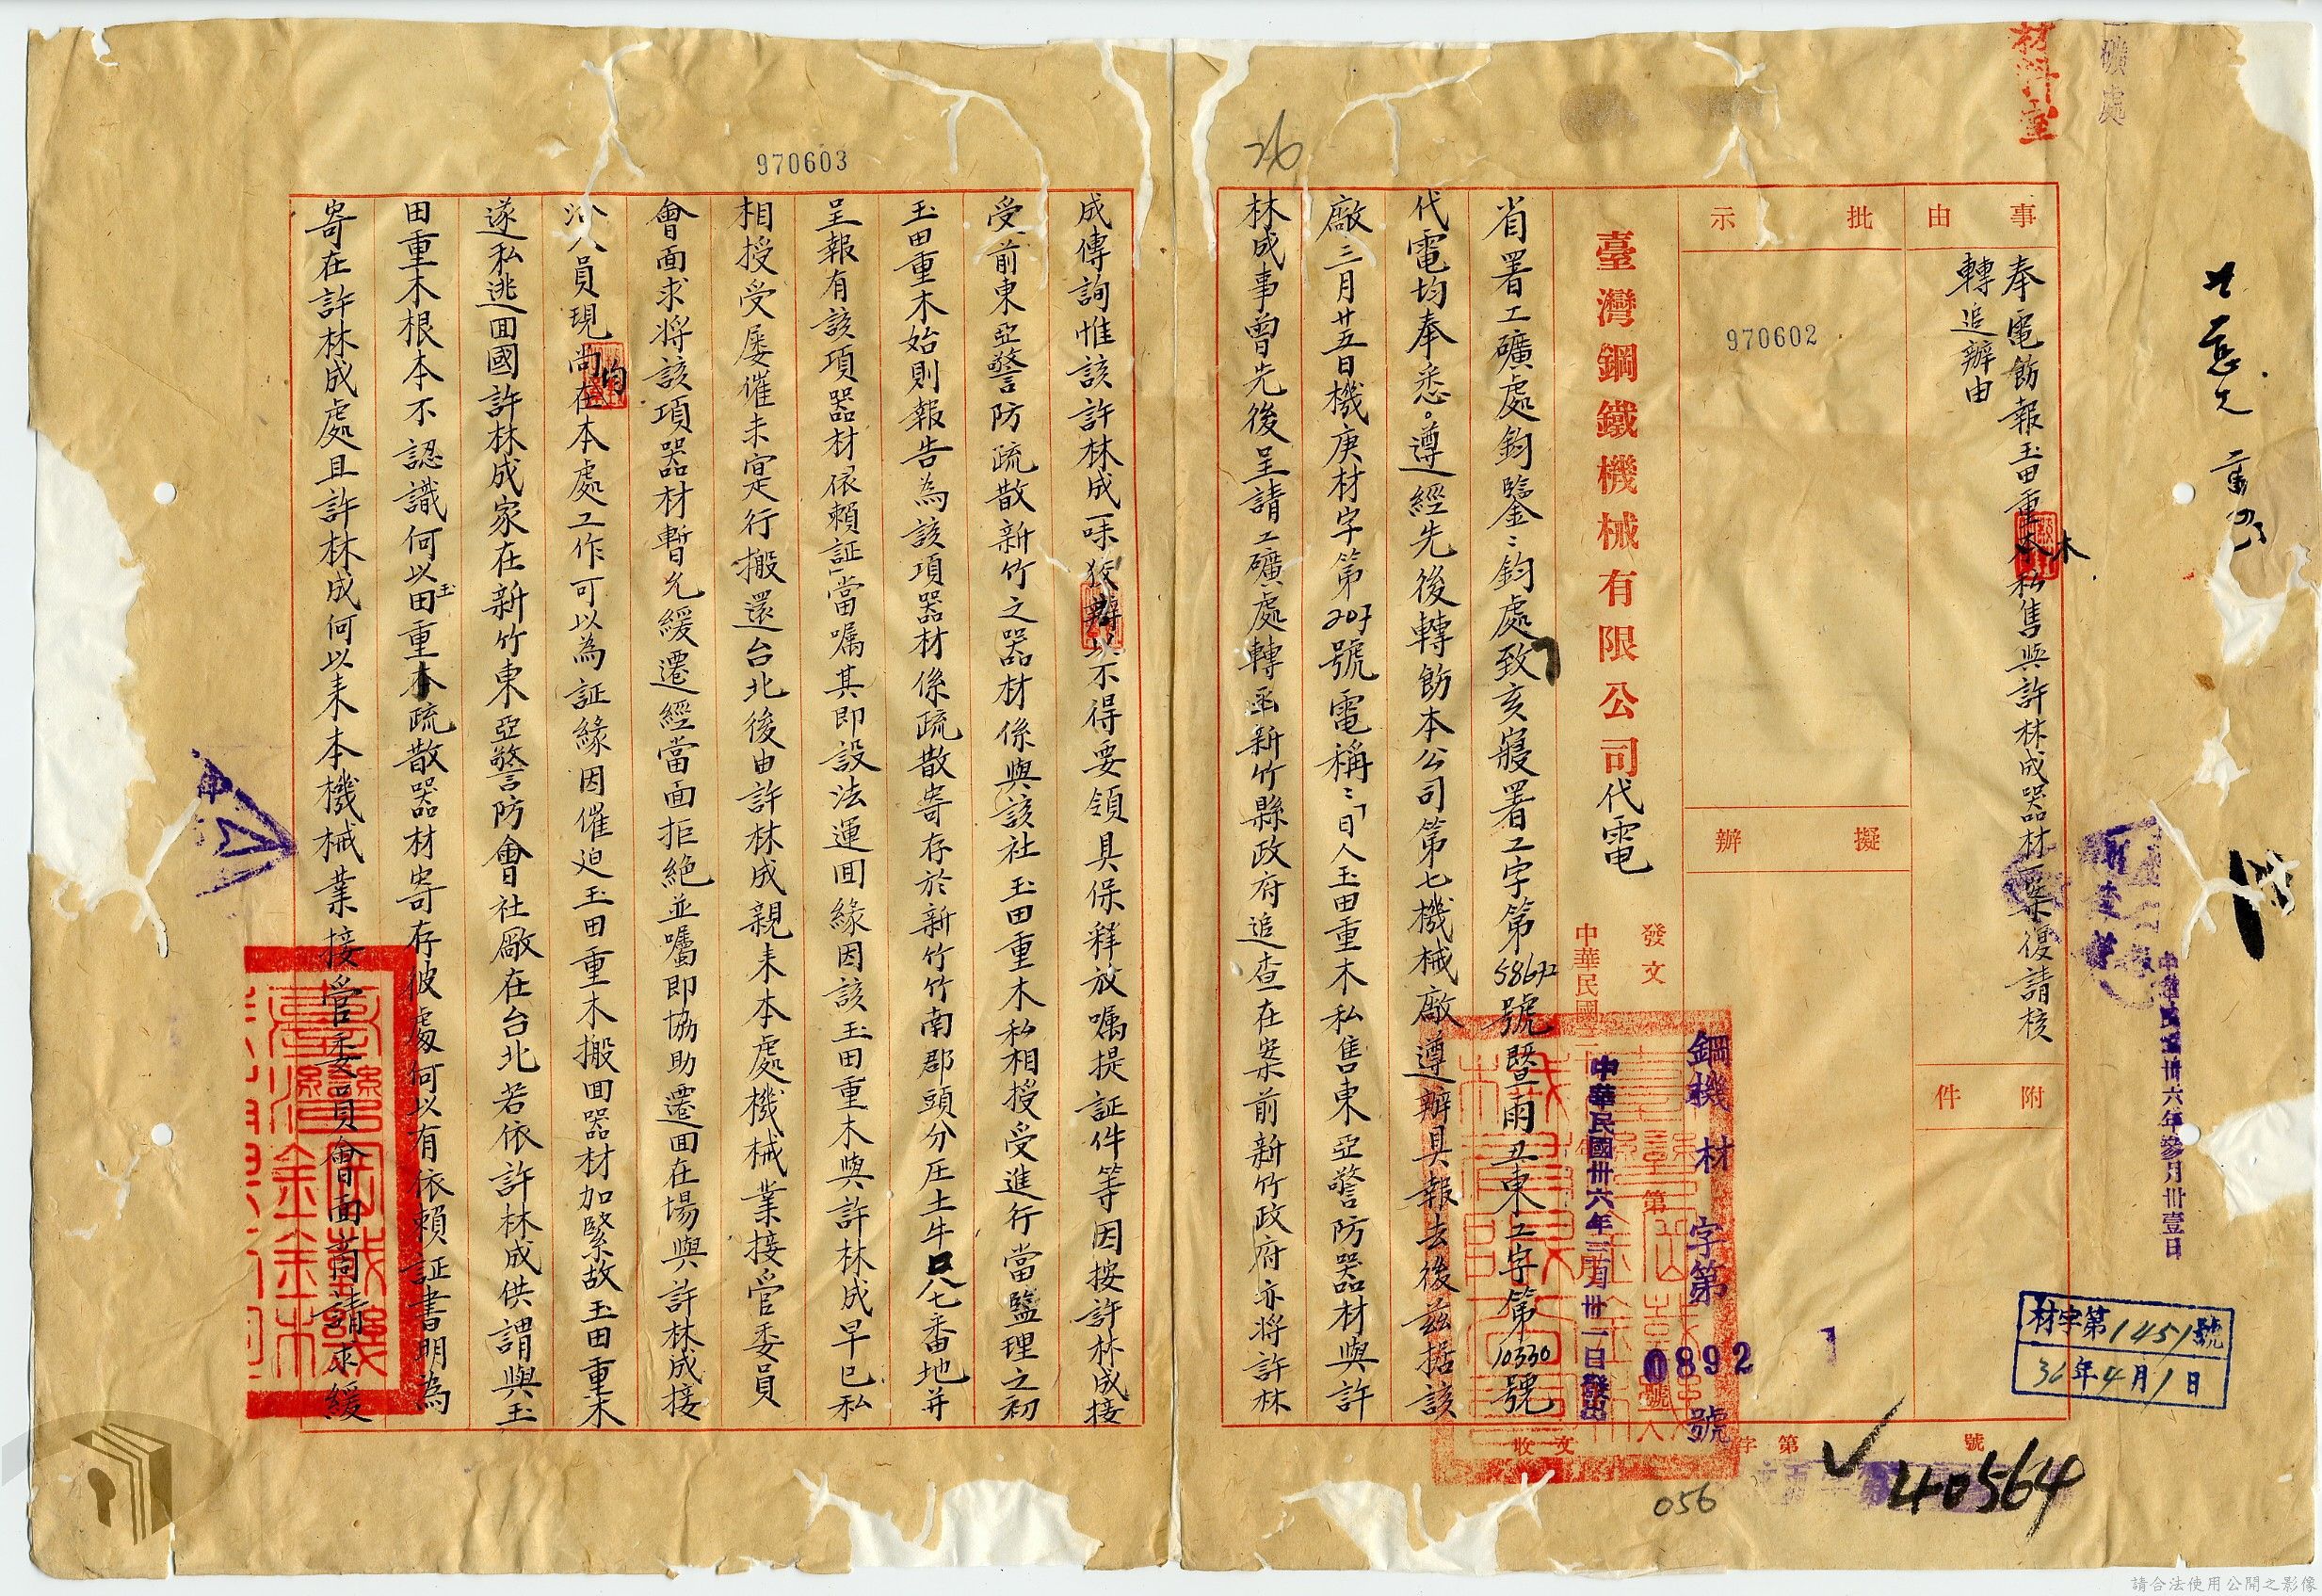 礦處
材料室
中華民國卅六年參月卅壹日
材字第1451號
36年4月1日
事由
奉電飭報玉田重木私售與許林成器材一案復請核
轉追辦由
附件
批示
970602
擬辦
臺灣鋼鐵機械有限公司代電
發文
鋼機材字第0892號
中華民國卅六年三月卅一日發出
省署工礦處鈞鑒:鈞處致亥寢署工字第58672號暨雨丑東工字第10330號
代電均奉悉。遵經先後轉飭本公司第七機械廠遵辦具報去後茲据該
廠三月廿五日機庚材字第207號電稱:「日人玉田重木私售東亞警防器材與許
林成事曾先後呈請工礦處轉函新竹縣政府追查在案前新竹政府亦將許林
收文 字第 號
40564
056
26
970603
成傳詢惟該許林成一味狡辯以不得要領具保釋放嘱提証件等因按許林成接
受前東亞警防疏散新竹之器材係與該社玉田重木私相授受進行當監理之初
玉田重木始則報告為該項器材係疏散寄存於新竹竹南郡頭分庄土牛口八七番地并
呈報有該項器材依賴証當嘱其即設法運回緣因該玉田重木與許林成早已私
相授受屡催未寔行搬還台北後由許林成親来本處機械業接管委員
會面求將該項器材暫允緩遷經當面拒絶並嘱即協助遷回在場與許林成接
洽人員現均尚在本處工作可以為証緣因催迫玉田重木搬回器材加緊故玉田重木
遂私逃回國許林成家在新竹東亞警防會社廠在台北若依許林成供謂與玉
田重木根本不認識何以玉田重木疏散器材寄存彼處何以有依賴証書明為
寄在許林成處且許林成何以来本機械業接管委員會面前請求緩
請合法使用公開之影像